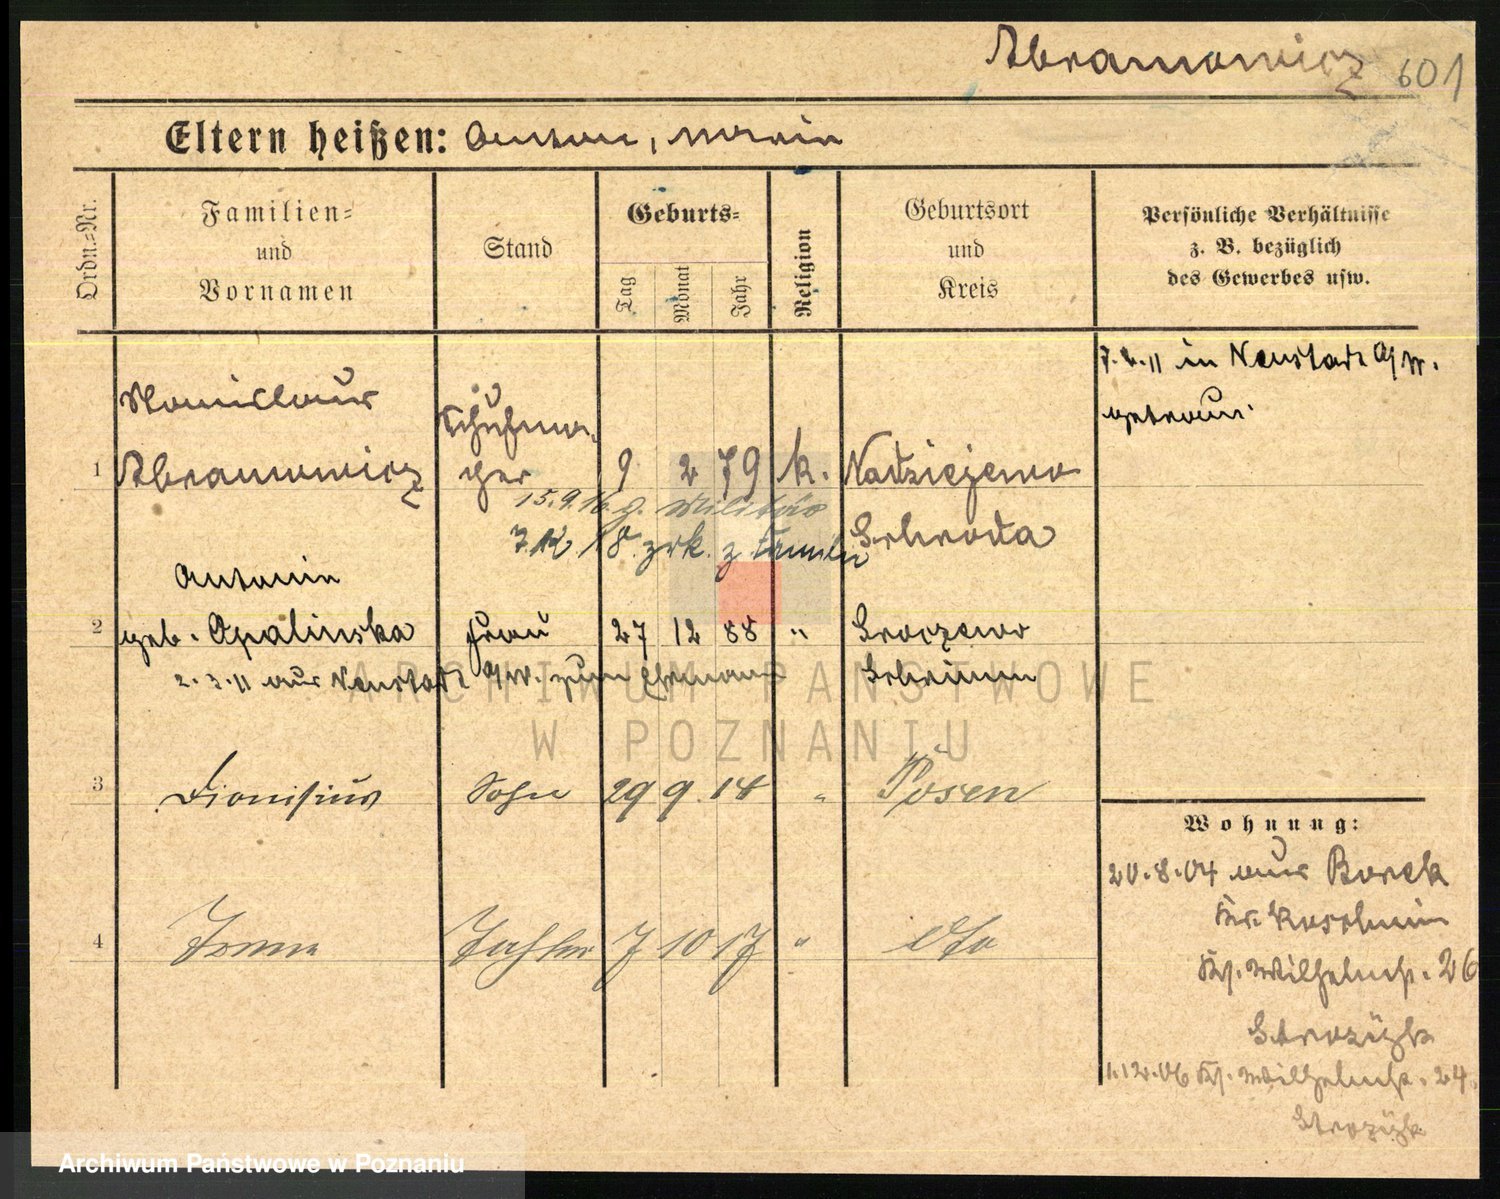 Abramowicz 601
Eltern heißen: Anton, Marie
Ordn.=Nr.
Familien=
und
Vornamen
Stand
Geburts=
Tag
Monat
Jahr
Religion
Geburtsort
und
Kreis
Persönliche Verhältnisse
z. B. bezüglich
des Gewerbes usw.
7.2.11 in Neustadt a/W.
getraut
Stanislaus
Schuhma-
1 Abramowicz cher 9 2 79 k. Nadziejewo
15.9.16 z. Militär
Schroda
7.12.18 zrk. z. Familie
Antonie
2 geb. Opalinska Frau 27 12 88 "
Schrimm
2.3.11 aus Neustadt a/W. zum Ehemann
3 Dionisius Sohn 29 9 14 " Posen
Wohnung:
20.8.04 aus Borek
Kr. Koschmin
4 Tochter 7 10 17 " dto
Ks. Wilhelmstr. 26
1.12.06 Ks. Wilhelmstr. 24.
ARCHIWUM PAŃSTWOWE
W POZNANIU
Archiwum Państwowe w Poznaniu